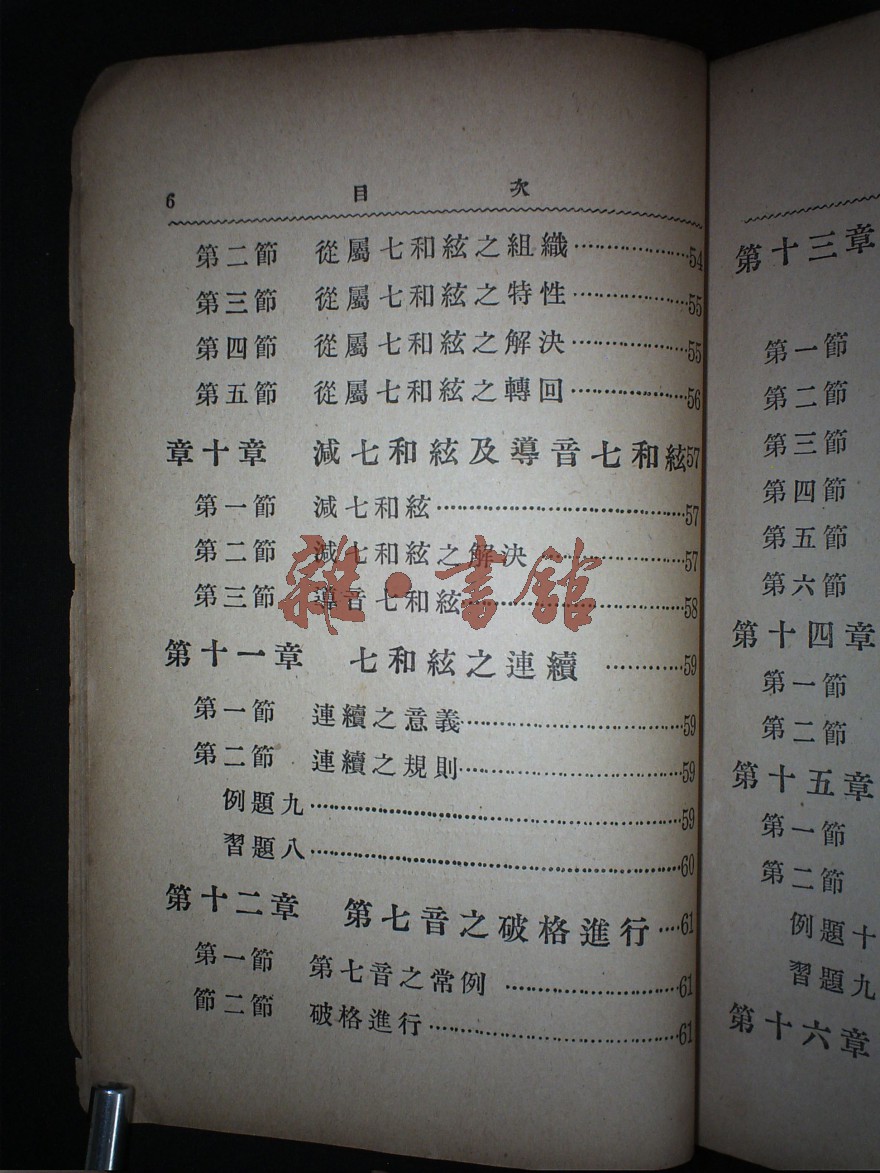 6 目次
第二節 從屬七和絃之組織…………54
第三節 從屬七和絃之特性…………55
第四節 從屬七和絃之解決…………55
第五節 從屬七和絃之轉回…………56
章十章 減七和絃及導音七和絃57
第一節 減七和絃…………57
第二節 減七和絃之解決…………57
第三節 導音七和絃…………58
第十一章 七和絃之連續…………59
第一節 連續之意義…………59
第二節 連續之規則…………59
例題九…………59
習題八…………60
第十二章 第七音之破格進行…61
第一節 第七音之常例…………61
節二節 破格進行…………61
雜·書館
第十三章
第一節
第二節
第三節
第四節
第五節
第六節
第十四章
第一節
第二節
第十五章
第一節
第二節
例題十
習題九
第十六章